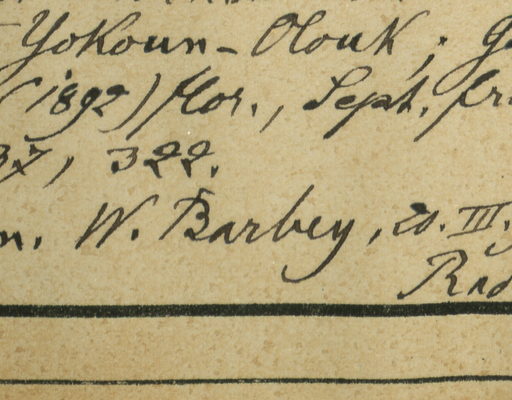 Yokoun-Olouk; G
(1892) flor., Sept. fr
37, 322.
m. W. Barbey, 20. III.
Rad